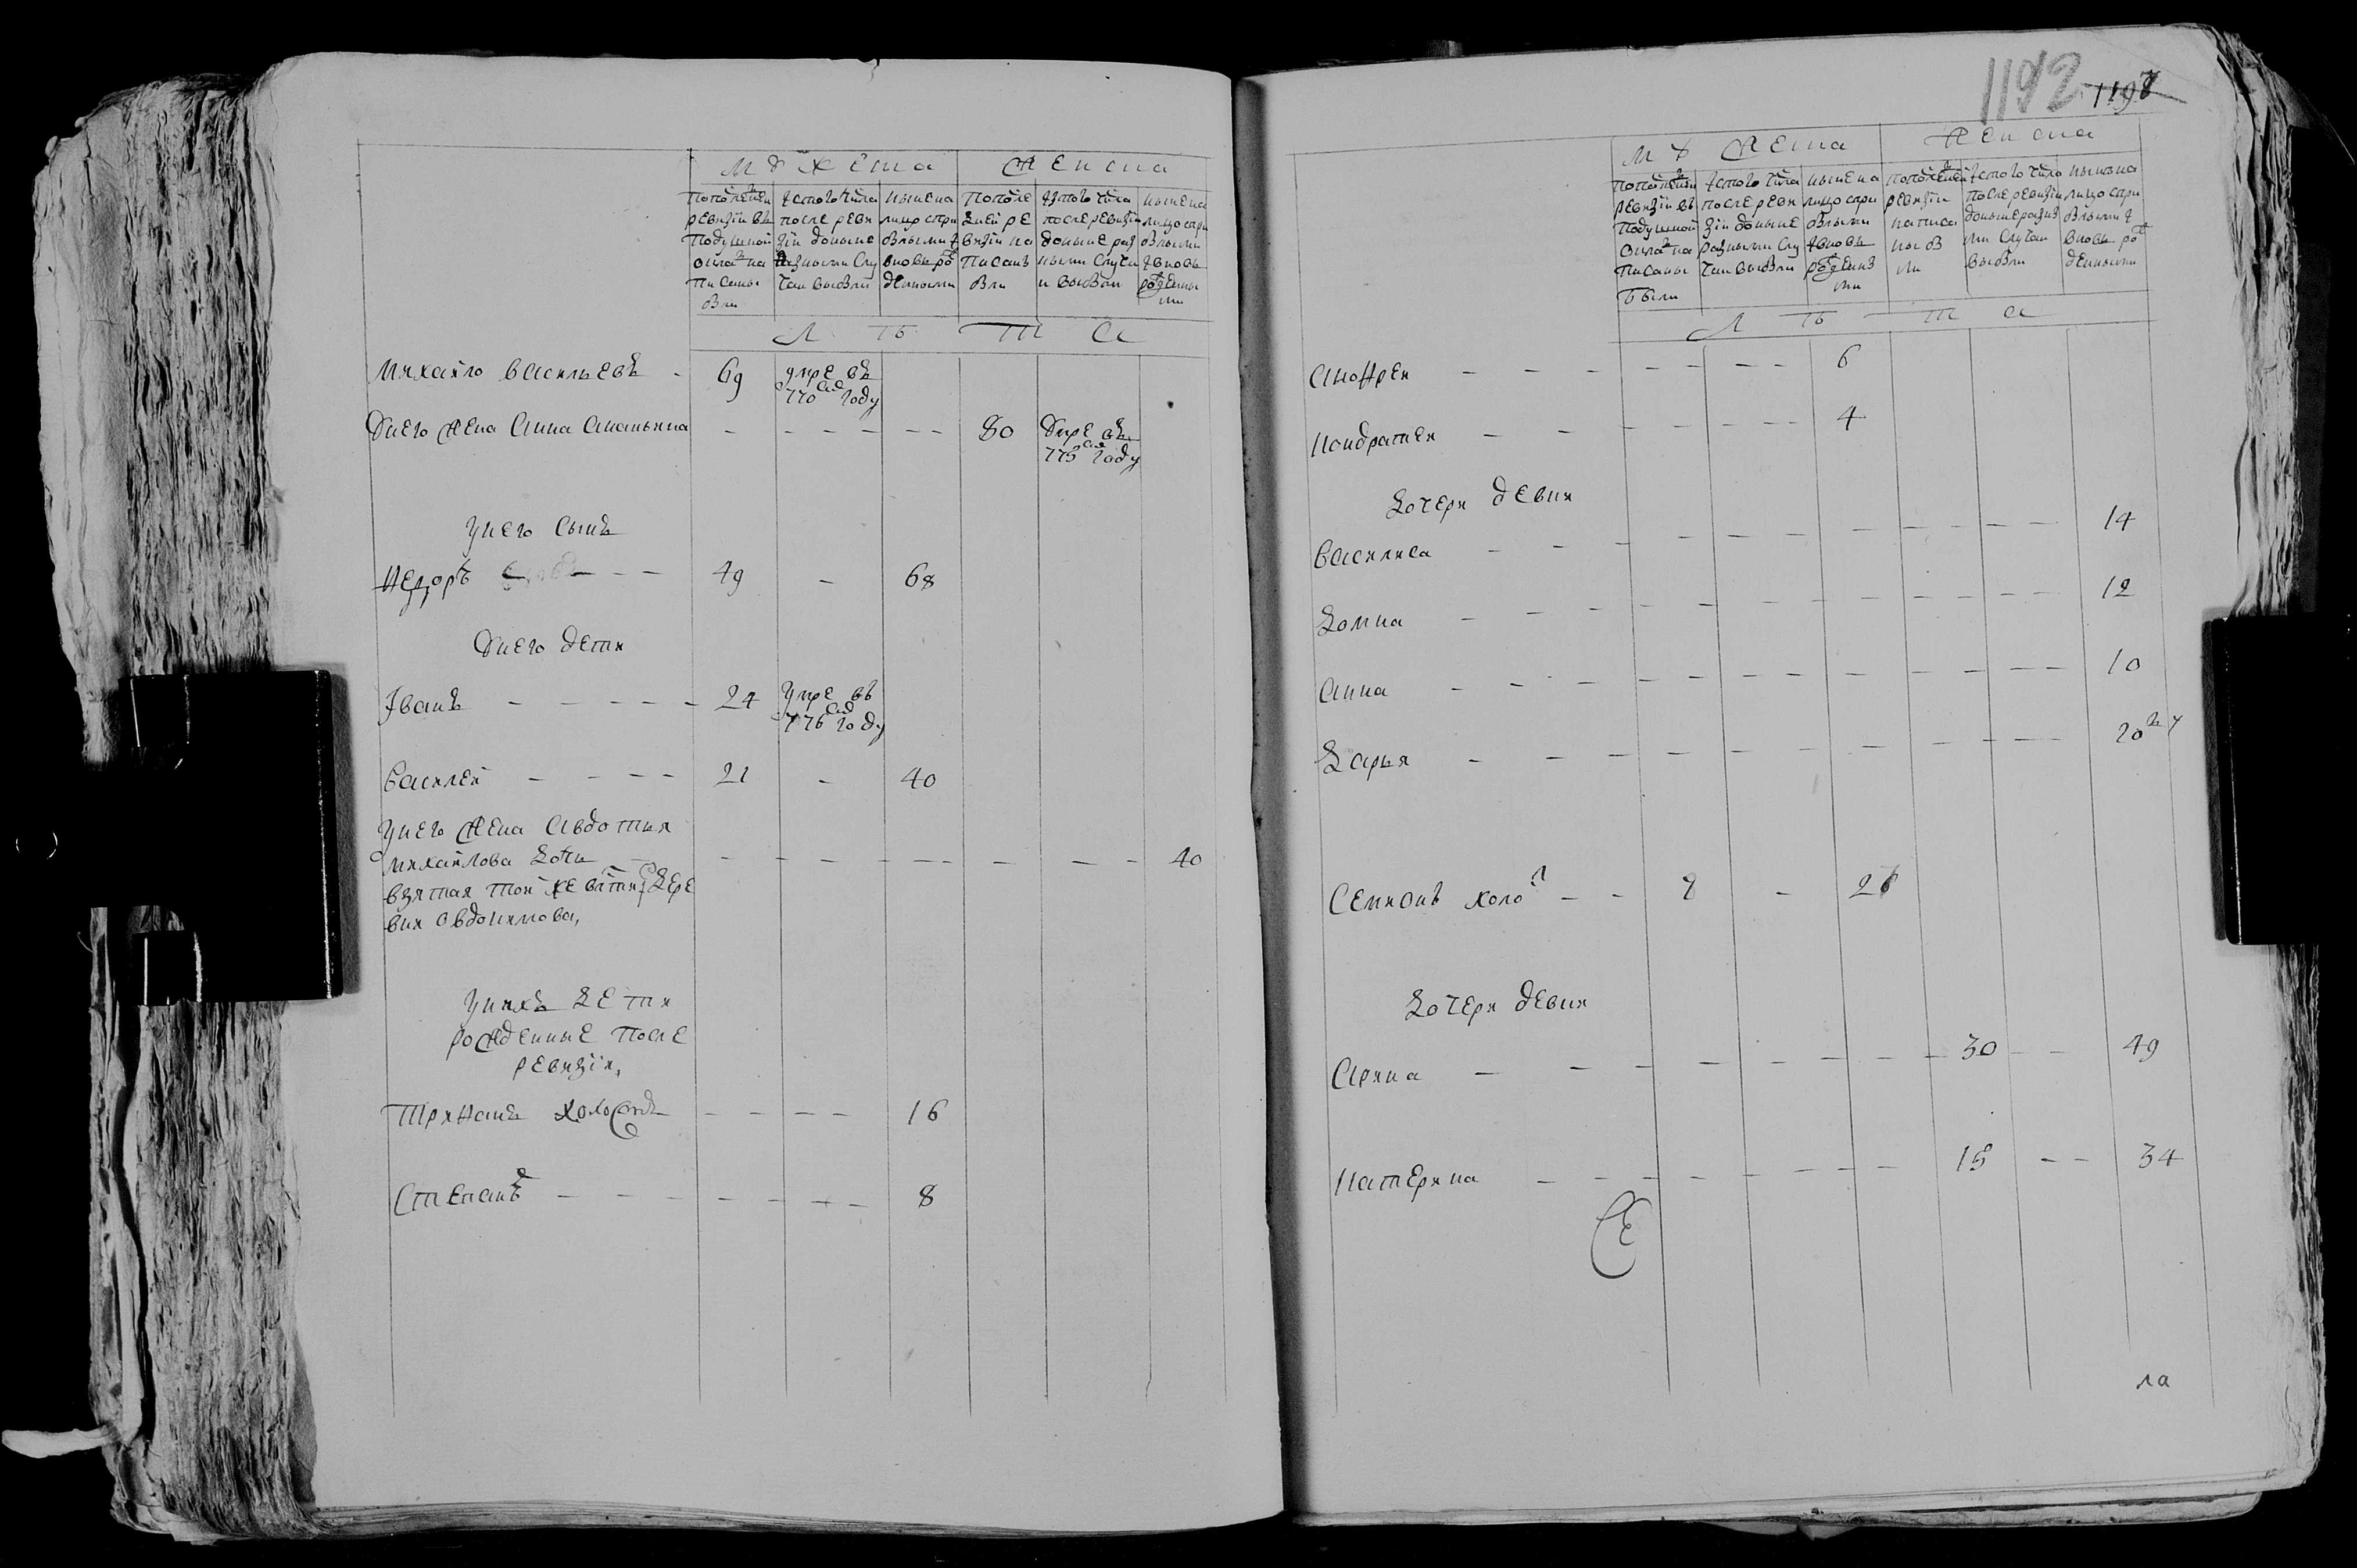 Мужеска Женска
Последней ревизіи въ подушной окладъ написаны были
Изтого числа после ревизіи доныне разными случаи выбыли
Ныне на лицо съ прибылыми и вновь рожденными
Последней ревизіи написаны были
Изтого числа после ревизіи доныне разными случаи выбыли
Ныне на лицо съ прибылыми и вновь рожденными
Лѣта
Михайло Васильевъ - 69 умре въ 770 году
Унего жена Анна Ананьина - - - - - - 80 Умре въ 775 году
Унего сынъ
Федоръ - - - 49 - 68
Унего дети
Іванъ - - - - - 24 Умре въ 776 году
Василей - - - - 21 - 40
Унего жена Авдотья
Михайлова дочь - - - - - - - - - 40
взятая той же вотчины дере
вни Овдокимова,
Унихъ дети
рожденные после
ревизіи,
Трифанъ холостъ - - - - 16
Степанъ - - - - - - - 8
1192 1197
Мужеска Женска
Последней ревизіи въ подушной окладъ написаны были
Изтого числа после ревизіи доныне разными случаи выбыли
Ныне на лицо съ прибылыми и вновь рожденными
Последней ревизіи написаны были
Изтого числа после ревизіи доныне разными случаи выбыли
Ныне на лицо съ прибылыми и вновь рожденными
Лѣта
Аноfрей - - - - - - - 6
Кондратей - - - - - - 4
Дочери девки
Василиса - - - - - - - - - - 14
Домна - - - - - - - - - - - 12
Анна - - - - - - - - - - - 10
Дарья - - - - - - - - - - 20
Семионъ холо - - 8 - 27
Дочери девки
Арина - - - - - - - - 30 - - 49
Катерина - - - - - - - - 15 - - 34
ла